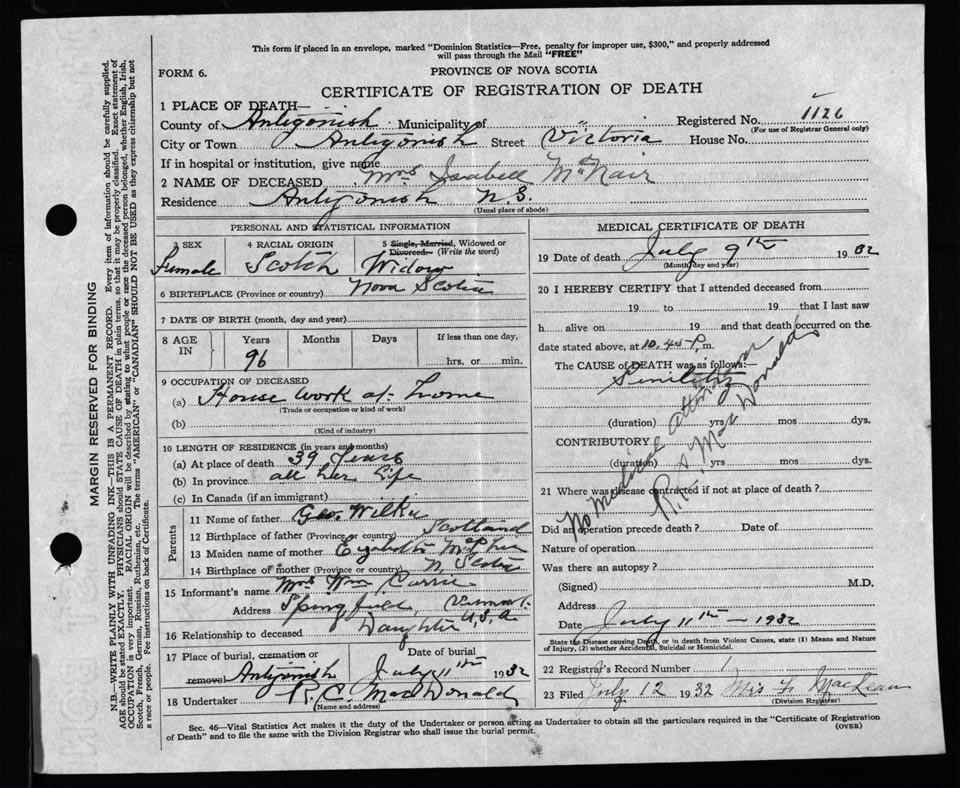 This form if placed in an envelope, marked "Dominion Statistics—Free, penalty for improper use, $300," and properly addressed
will pass through the Mail "FREE"
FORM 6.
PROVINCE OF NOVA SCOTIA
CERTIFICATE OF REGISTRATION OF DEATH
1 PLACE OF DEATH—
County of Antigonish Municipality of " Registered No. 1126
(For use of Registrar General only)
City or Town Antigonish Street Victoria House No.
If in hospital or institution, give name
2 NAME OF DECEASED Mrs Isabell McNair
Residence Antigonish N.S.
(Usual place of abode)
PERSONAL AND STATISTICAL INFORMATION
3 SEX
Female
4 RACIAL ORIGIN
Scotch
5 Single, Married, Widowed or
Divorced. (Write the word)
Widow
6 BIRTHPLACE (Province or country) Nova Scotia
7 DATE OF BIRTH (month, day and year)
8 AGE IN Years Months Days If less than one day,
96 hrs. or min.
9 OCCUPATION OF DECEASED
(a) House work at home
(Trade or occupation or kind of work)
(b)
(Kind of industry)
10 LENGTH OF RESIDENCE (in years and months)
(a) At place of death 39 years
(b) In province all her life
(c) In Canada (if an immigrant)
Parents
11 Name of father Geo. Wilkie
12 Birthplace of father (Province or country) Scotland
13 Maiden name of mother
14 Birthplace of mother (Province or country) N. Scotia
15 Informant's name Mrs Wm Currie
Address Springfield, Vermont.
U.S.A
16 Relationship to deceased Daughter
17 Place of burial, cremation or removal Antigonish
Date of burial
July 11th 1932
18 Undertaker R.C. MacDonald
(Name and address)
MEDICAL CERTIFICATE OF DEATH
19 Date of death July 9th 1932
(Month, day and year)
20 I HEREBY CERTIFY that I attended deceased from
19 to 19 that I last saw
h alive on 19 and that death occurred on the
date stated above, at 10.45 P. m.
The CAUSE OF DEATH was as follows:
Senility
(duration) yrs mos dys.
CONTRIBUTORY
(duration) yrs mos dys.
No Medical attention
MacDonald
21 Where was disease contracted if not at place of death?
Did an operation precede death? Date of
Nature of operation
Was there an autopsy?
(Signed) M.D.
Address
Date July 11th — 1932
State the Disease causing Death, or in death from Violent Causes, state (1) Means and Nature
of Injury, (2) whether Accidental, Suicidal or Homicidal.
22 Registrar's Record Number 1
23 Filed July 12 1932 Mrs F. MacLean
(Division Registrar)
Sec. 46—Vital Statistics Act makes it the duty of the Undertaker or person acting as Undertaker to obtain all the particulars required in the "Certificate of Registration
of Death" and to file the same with the Division Registrar who shall issue the burial permit.
(OVER)
MARGIN RESERVED FOR BINDING
N.B.—WRITE PLAINLY WITH UNFADING INK—THIS IS A PERMANENT RECORD. Every item of information should be carefully supplied.
AGE should be stated EXACTLY. PHYSICIANS should STATE CAUSE OF DEATH in plain terms, so that it may be properly classified. Exact statement of
OCCUPATION is very important. RACIAL ORIGIN will be described by stating to what people or race the deceased person belonged, whether English, Irish,
Scotch, French, German, Russian, Ruthenian, etc. The terms "AMERICAN" or "CANADIAN" SHOULD NOT BE USED as they express citizenship but not
a race or people. See instructions on back of Certificate.